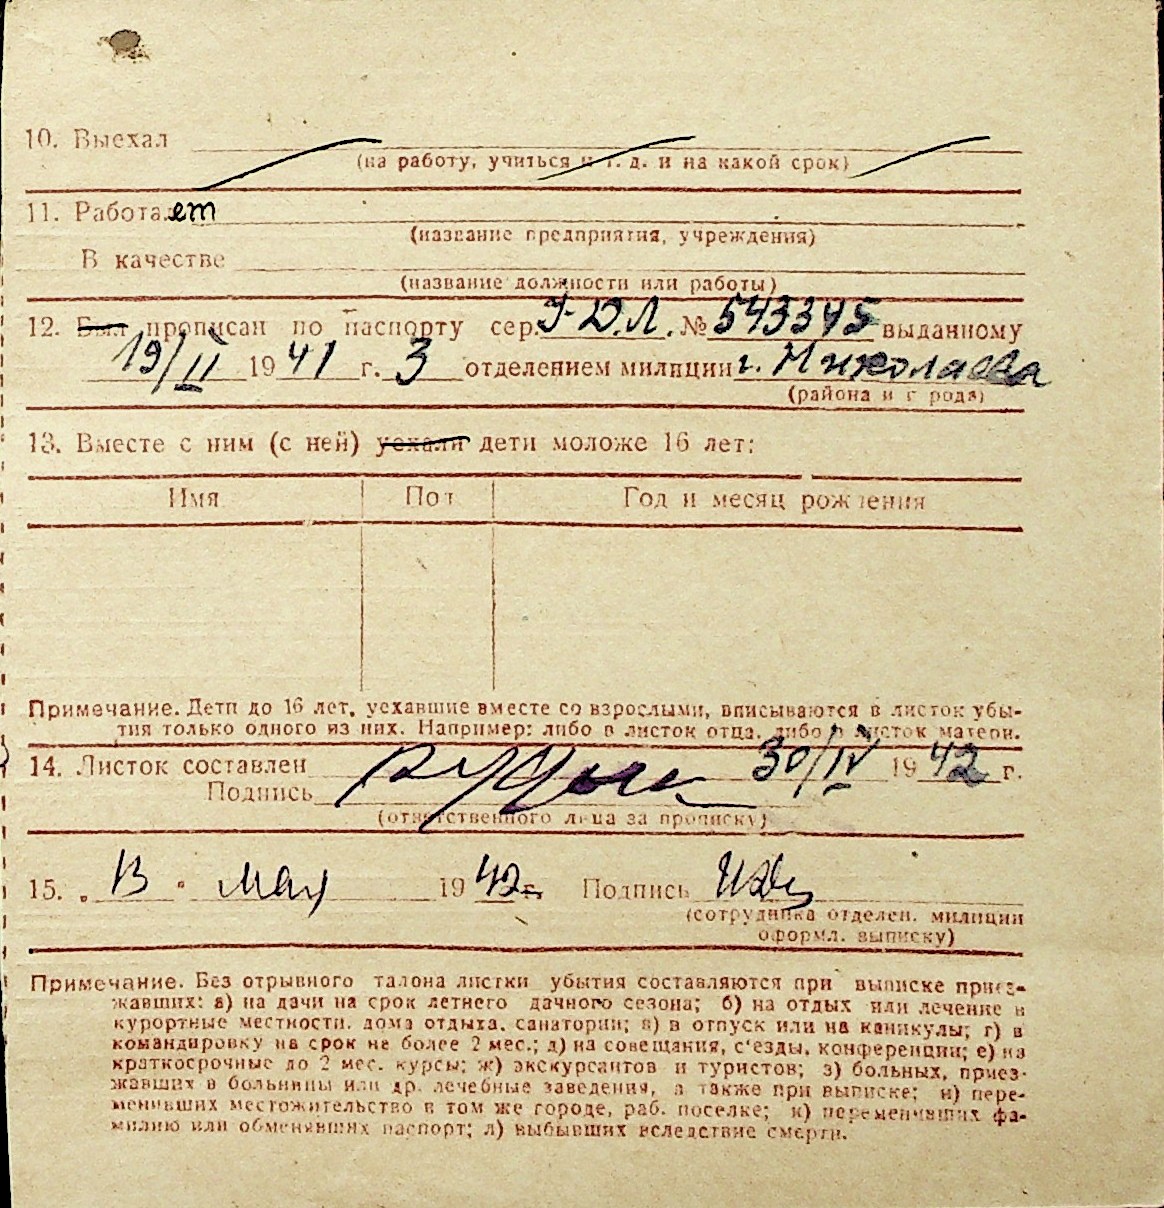 10. Выехал
(на работу, учиться и т. д. и на какой срок)
11. Работает
(название предприятия, учреждения)
В качестве
(название должности или работы)
12. Был прописан по паспорту сер. I-Д.Л. № 543345 выданному
19/II 1941 г. 3 отделением милиции г. Николаева
(района и города)
13. Вместе с ним (с ней) уехали дети моложе 16 лет:
Имя Пол Год и месяц рождения
Примечание. Дети до 16 лет, уехавшие вместе со взрослыми, вписываются в листок убы-
тия только одного из них. Например: либо в листок отца, либо в листок матери.
14. Листок составлен 30/IV 1942 г.
Подпись
(ответственного лица за прописку)
15. „13" мая 1942 г. Подпись
(сотрудника отделен. милиции
оформл. выписку)
Примечание. Без отрывного талона листки убытия составляются при выписке приез-
жавших: а) на дачи на срок летнего дачного сезона; б) на отдых или лечение в
курортные местности, дома отдыха, санатории; в) в отпуск или на каникулы; г) в
командировку на срок не более 2 мес.; д) на совещания, с'езды, конференции; е) на
краткосрочные до 2 мес. курсы; ж) экскурсантов и туристов; з) больных, приез-
жавших в больницы или др. лечебные заведения, а также при выписке; и) пере-
менивших местожительство в том же городе, раб. поселке; к) переменивших фа-
милию или обменявших паспорт; л) выбывших вследствие смерти.